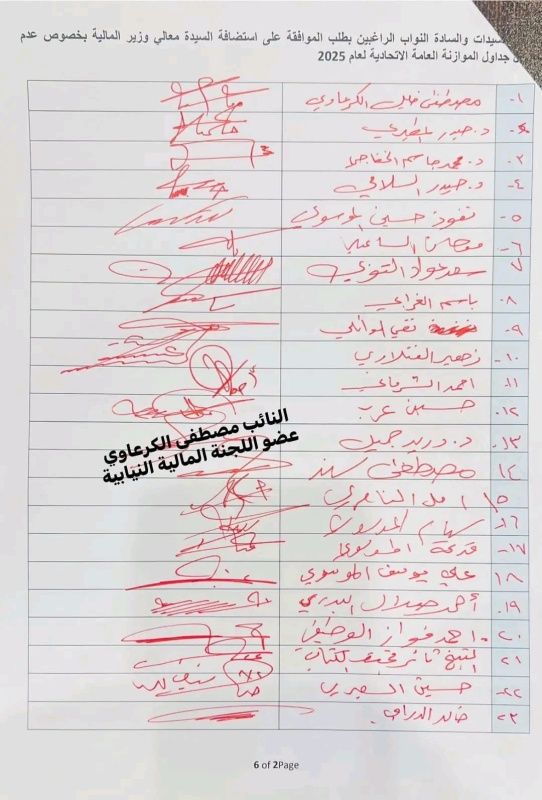 سيدات والسادة النواب الراغبين بطلب الموافقة على استضافة السيدة معالي وزير المالية بخصوص عدم
جداول الموازنة العامة الاتحادية لعام 2025
١- مصطفى خليل الكرعاوي
د. حيدر المطيري
٣- د. محمد جاسم الخفاجي
٤- د. حيدر السلامي
٥- نفوذ حسين الموسوي
٦-
٧ سعد عواد التوبي
٨- باسم الغرابي
٩- تقي الوائلي
١٠- زهير الفتلاوي
١١- احمد الشرماني
١٢- حسين عرب
١٣- د. دريد جميل
١٤ مصطفى سند
امل الناصري
١٦ سهام الموسوي
١٧- الموسوي
١٨ علي يوسف الموسوي
١٩- أحمد البدري
٢٠- احمد فواز الوطيفي
٢١ الشيخ ثائر مخيف الكتاب
٢٢- حسين
٢٣ خالد الدراجي
النائب مصطفى الكرعاوي
عضو اللجنة المالية النيابية
6 of 2Page